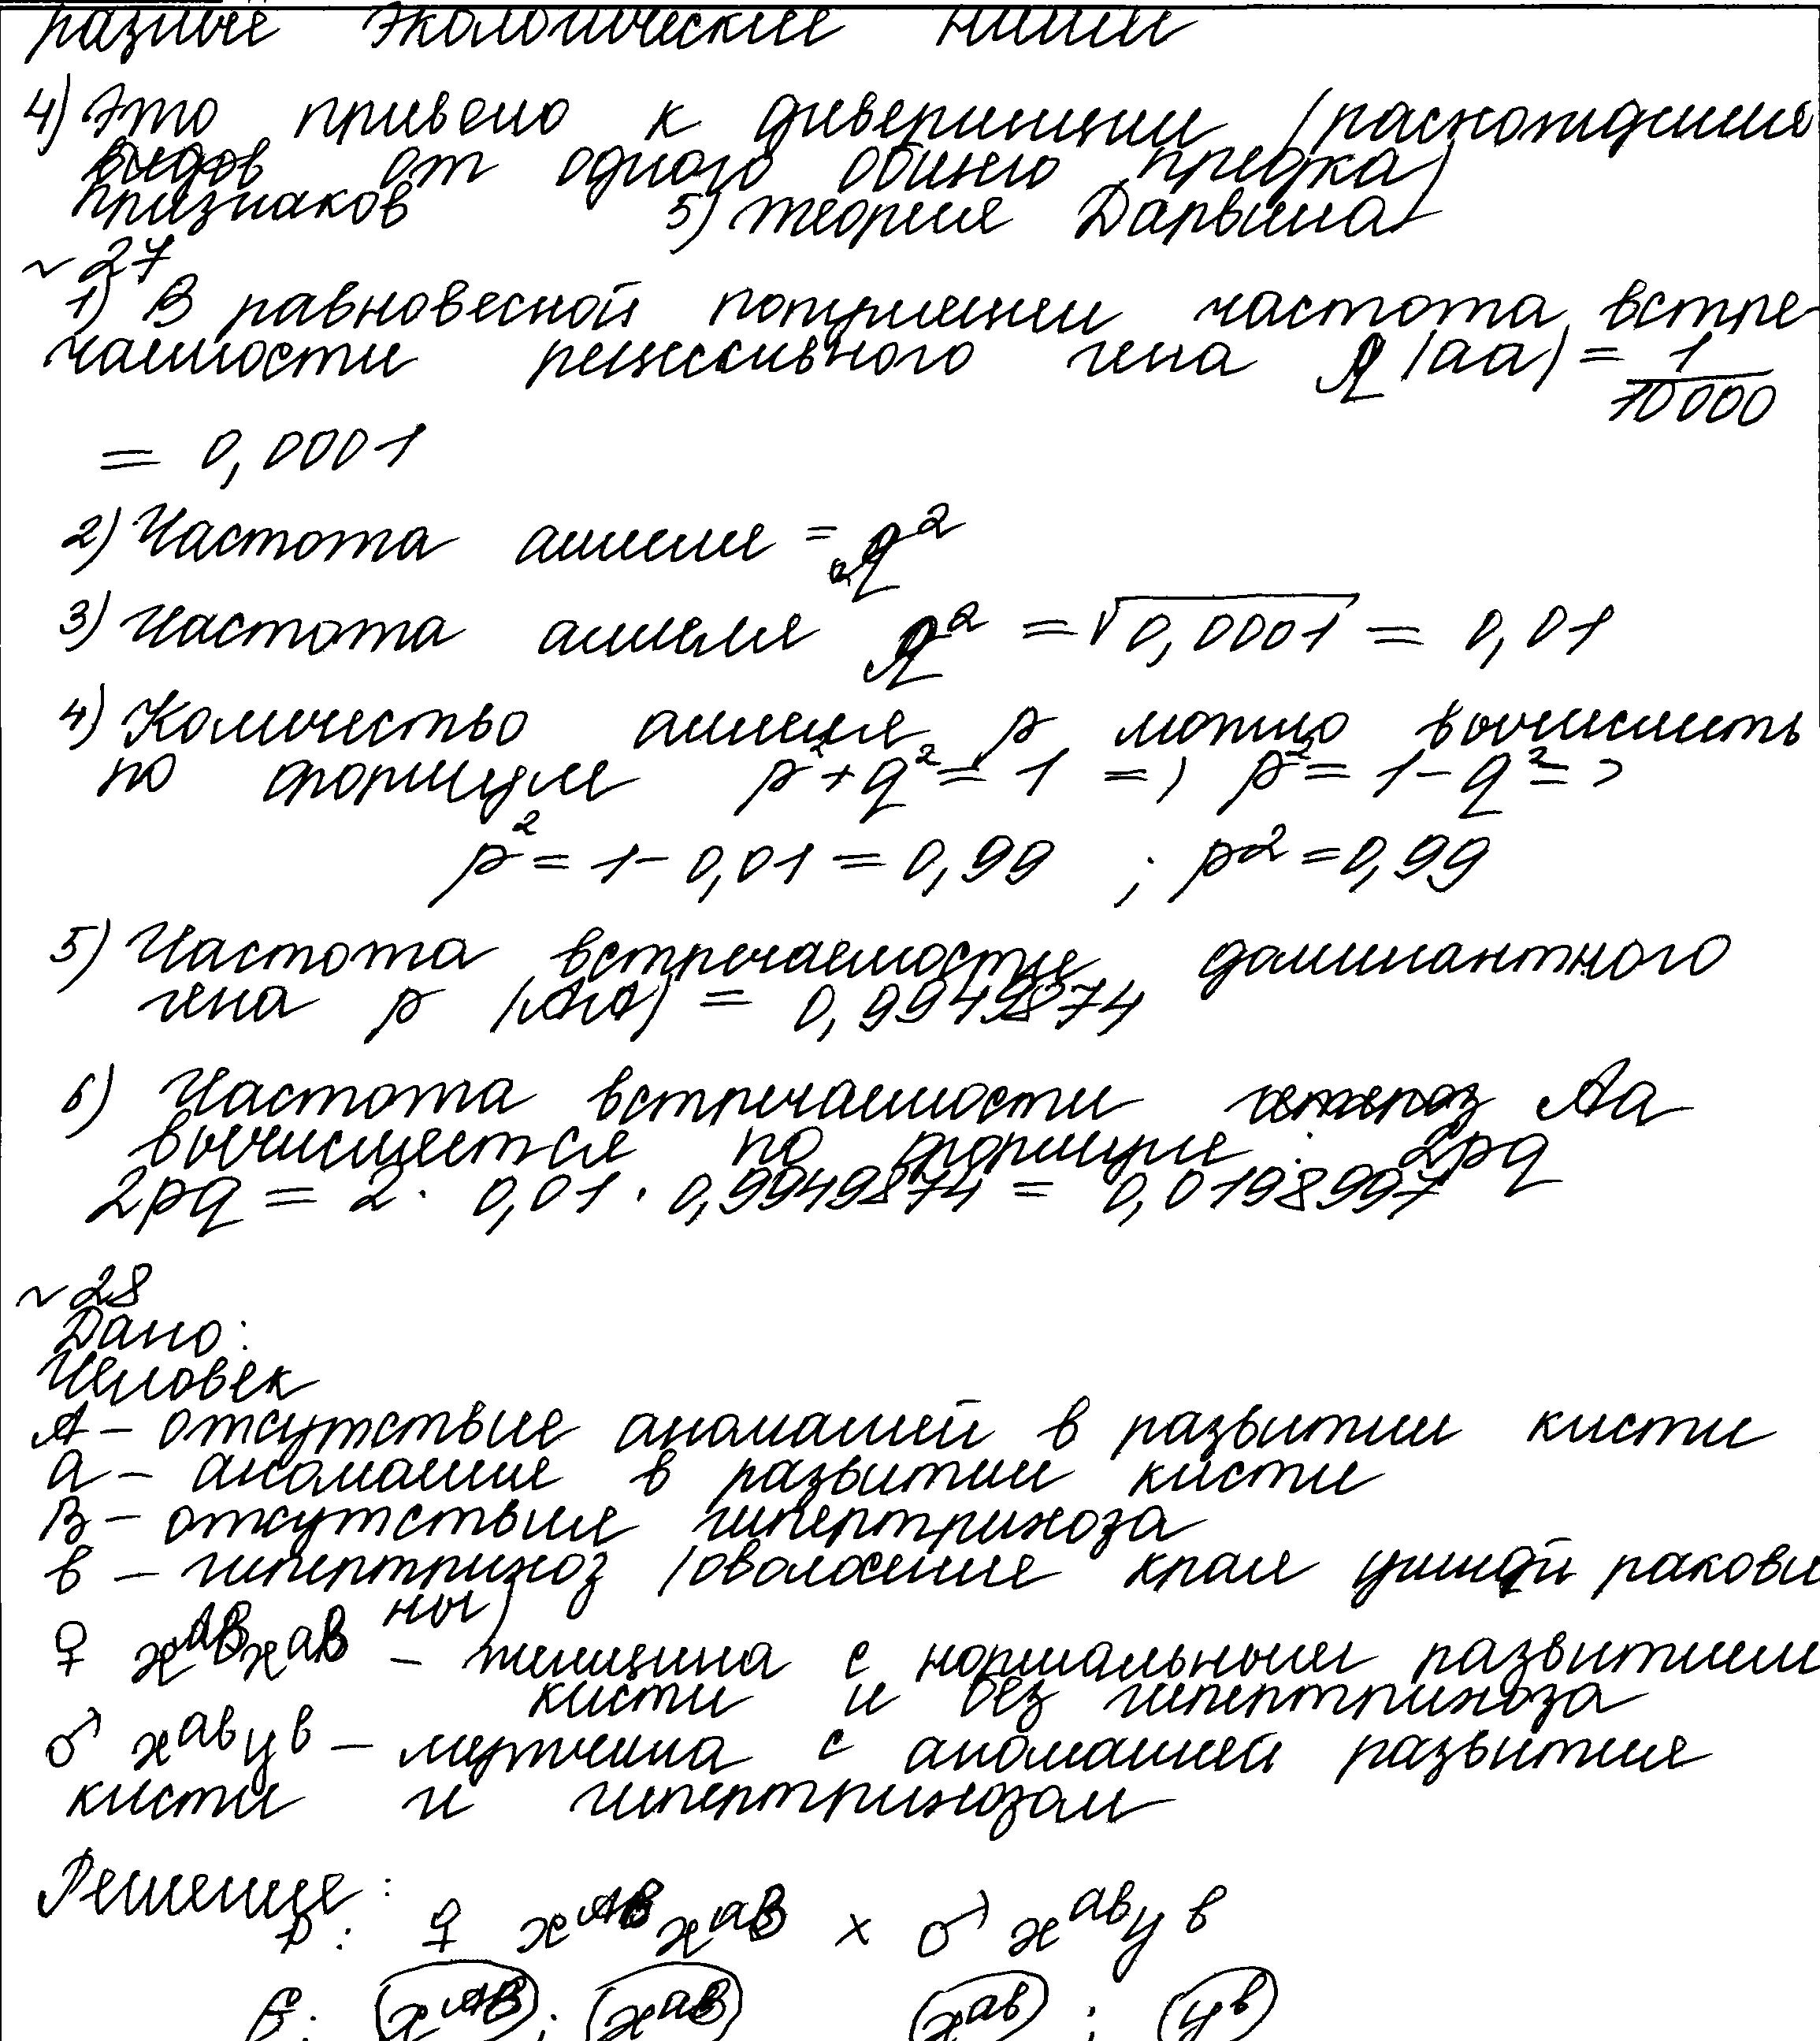 разные экологические ниши
4) Это привело к дивергенции (расхождению
видов от одного общего предка)
признаков 5) теория Дарвина
~ 27
1) В равновесной популяции частота встре-
чаемости рецессивного гена q (aa) = 1/10000
= 0,0001
2) Частота аллеля = q²
3) Частота аллеля q² = √0,0001 = 0,01
4) Количество аллеля p можно вычислить
по формуле p² + q² = 1 => p² = 1 - q² =>
p² = 1 - 0,01 = 0,99 ; p² = 0,99
5) Частота встречаемости доминантного
гена p (AA) = 0,9949874
6) Частота встречаемости гетероз Aa
вычисляется по формуле : 2pq
2pq = 2 · 0,01 · 0,9949874 = 0,0198997
~ 28
Дано:
Человек
A – отсутствие аномалий в развитии кисти
a – аномалие в развитии кисти
B – отсутствие гипертрихоза
b – гипертрихоз (оволосение края ушной ракови
ны)
♀ x^AB x^aB – женщина с нормальным развитием
кисти и без гипертрихоза
♂ x^ab y^b – мужчина с аномалией развития
кисти и гипертрихозам
Решение :
P : ♀ x^AB x^aB × ♂ x^ab y^b
G: (x^AB) ; (x^aB) (x^ab) ; (y^b)